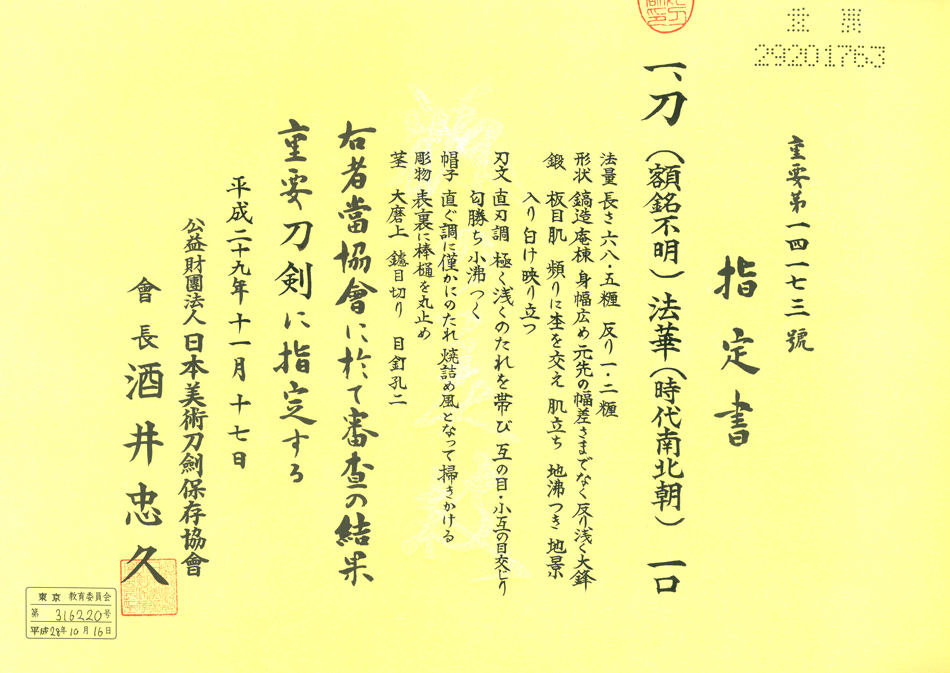 重要
29201763
指定書
重要第一四一七三號
一、刀(額銘不明)法華(時代南北朝) 一口
法量 長さ六八・五糎 反り一・二糎
形状 鎬造庵棟 身幅広め 元先の幅差さまでなく 反り浅く 大鋒
鍛 板目肌 頻りに杢を交え 肌立ち 地沸つき 地景
入り 白け映り立つ
刃文 直刃調 極く浅くのたれを帯び 互の目・小互の目交じり
匂勝ち小沸つく
帽子 直ぐ調に僅かにのたれ 焼詰め風となって掃きかける
彫物 表裏に棒樋を丸止め
茎 大磨上 鑢目切り 目釘孔二
右者當協會に於て審査の結果
重要刀剣に指定する
平成二十九年十一月十七日
公益財團法人日本美術刀劍保存協會
會長 酒井忠久
東京 教育委員会
第 316220号
平成28年10月16日